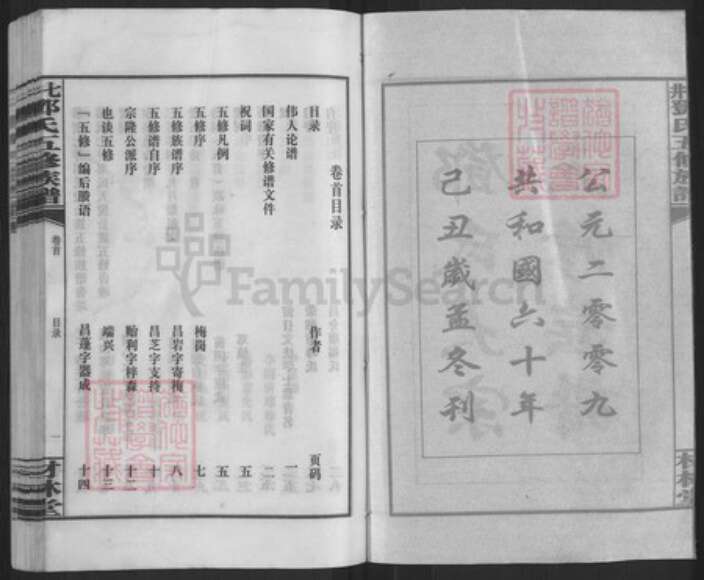 公元二零零九
共和國六十年
己丑歲孟冬刊
卷首目录
目录 作者 页码
伟人论谱 一
国家有关修谱文件 二
祝词 五
五修凡例 五
五修序 梅岗 七
五修族谱序 昌岩字寄梅 八
五修谱自序 昌芝字支持 十
宗隆公派序 贻利字梓森 十二
也谈五修 端兴 十三
「五修」编后赘语 昌蓬字器成 十四
氏五修族譜
卷首
目录
一
林堂
FamilySearch